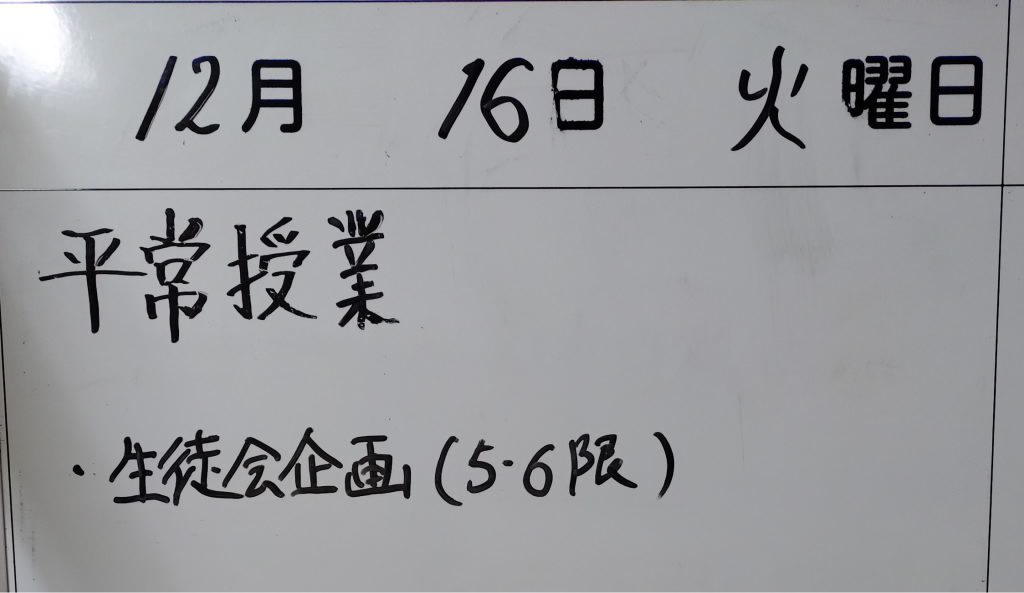 12月 16日 火曜日
平常授業
・生徒会企画(5・6限)